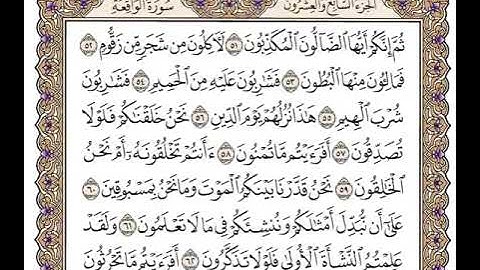 الجزء السابع والعشرون سورة الواقعة
ثُمَّ إِنَّكُمْ أَيُّهَا ٱلضَّآلُّونَ ٱلْمُكَذِّبُونَ ٥١ لَآكِلُونَ مِن شَجَرٍ مِّن زَقُّومٍ ٥٢
فَمَالِـُٔونَ مِنْهَا ٱلْبُطُونَ ٥٣ فَشَٰرِبُونَ عَلَيْهِ مِنَ ٱلْحَمِيمِ ٥٤ فَشَٰرِبُونَ
شُرْبَ ٱلْهِيمِ ٥٥ هَٰذَا نُزُلُهُمْ يَوْمَ ٱلدِّينِ ٥٦ نَحْنُ خَلَقْنَٰكُمْ فَلَوْلَا
تُصَدِّقُونَ ٥٧ أَفَرَءَيْتُم مَّا تُمْنُونَ ٥٨ ءَأَنتُمْ تَخْلُقُونَهُۥٓ أَمْ نَحْنُ
ٱلْخَٰلِقُونَ ٥٩ نَحْنُ قَدَّرْنَا بَيْنَكُمُ ٱلْمَوْتَ وَمَا نَحْنُ بِمَسْبُوقِينَ ٦٠
عَلَىٰٓ أَن نُّبَدِّلَ أَمْثَٰلَكُمْ وَنُنشِئَكُمْ فِى مَا لَا تَعْلَمُونَ ٦١ وَلَقَدْ
عَلِمْتُمُ ٱلنَّشْأَةَ ٱلْأُولَىٰ فَلَوْلَا تَذَكَّرُونَ ٦٢ أَفَرَءَيْتُم مَّا تَحْرُثُونَ